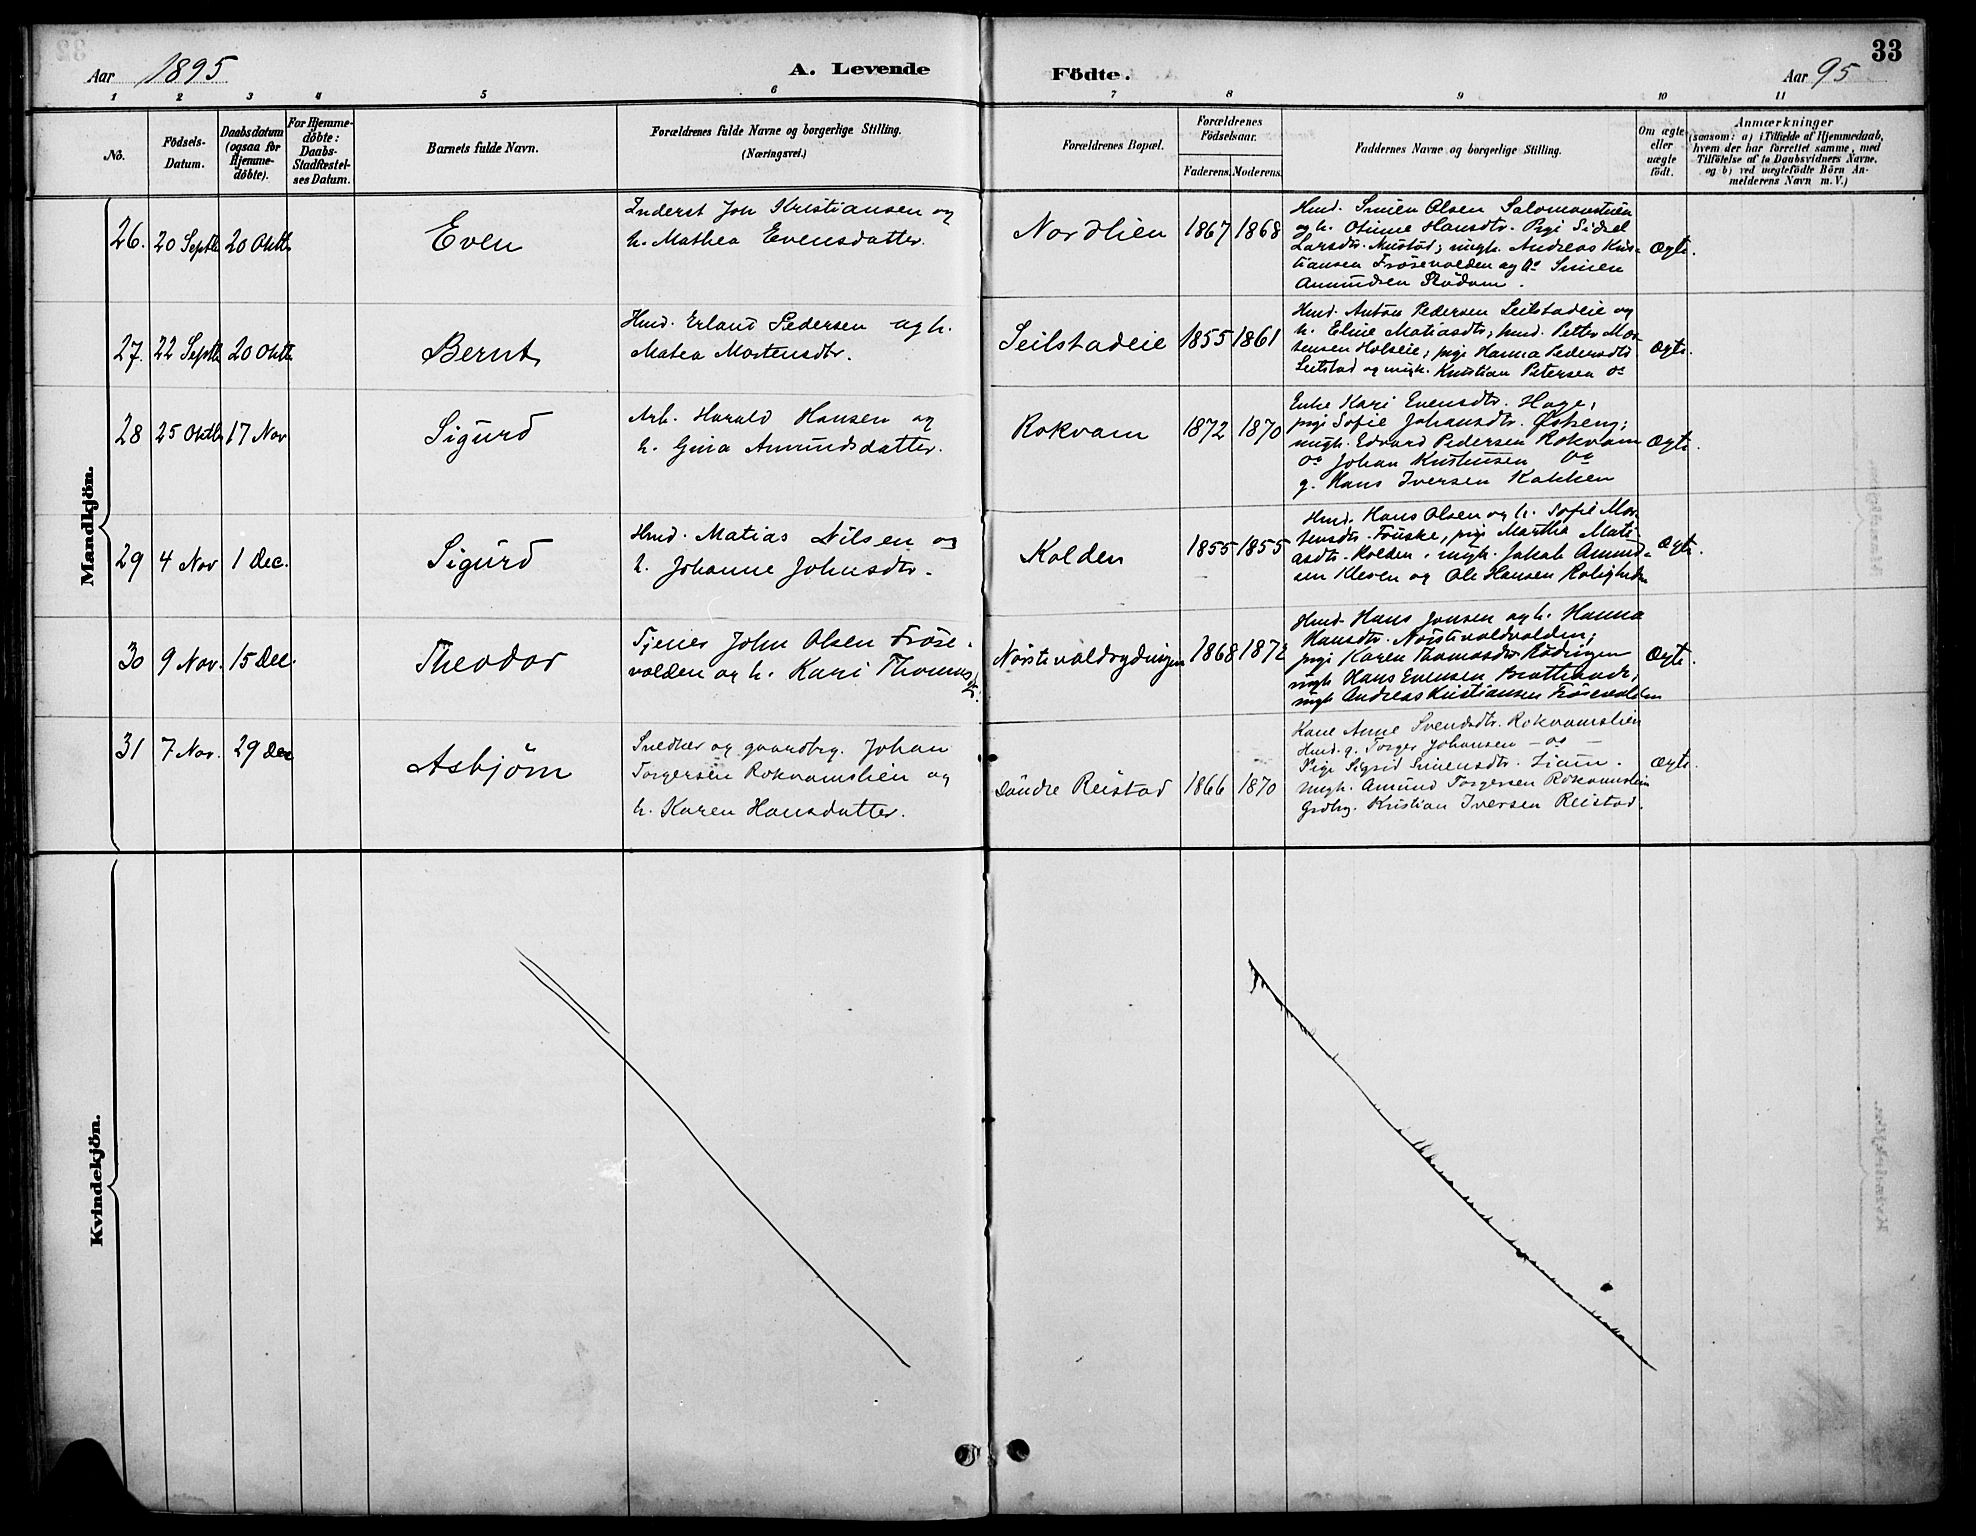 Aar 1895
A. Levende
Födte.
Aar 95
33
1 2 3 4 5 6 7 8 9 10 11
No.
Födsels-
Datum.
Daabsdatum
(ogsaa for
Hjemme-
döbte).
For Hjemme-
döbte:
Daabs-
Stadfæstel-
ses Datum.
Barnets fulde Navn.
Forældrenes fulde Navne og borgerlige Stilling.
(Næringsvei.)
Forældrenes Bopæl.
Forældrenes
Födselsaar.
Faderens. Moderens.
Faddernes Navne og borgerlige Stilling.
Om ægte
eller
uægte
födt.
Anmærkninger
(saasom: a) i Tilfælde af Hjemmedaab,
hvem der har forrettet samme, med
Tilföielse af to Daabsvidners Navne,
og b) ved uægtefödte Börn An-
melderens Navn m. V.)
Mandkjön.
26. 20 Septb 20 Oktb
Even
Inderst Joh Kristiansen og
h. Mathea Evensdatter.
Nordlien 1867 1868
Hmd. Simen Olsen Salomonstuen
og h. Otinne Hansdtr. Pigi Sidsel
Larsdtr. Mustad; ungk. Andreas Kris-
tiansen Frösevolden og do Simen
Amundsen Rödom.
Ægte.
27. 22 Septb 20 Oktb
Bernt
Hmd. Erland Pedersen og h.
Matea Mortensdtr.
Seilstadeie 1855 1861
Hmd. Anton Pedersen Seilstadeie og
h. Eline Matiasdtr; hmd. Petter Mor-
tensen Holseie; pige Hanna Pedersdtr
Seilstad og ungk. Kristian Petersen do
Ægte.
28 25 Oktb 17 Nov
Sigurd
Arb. Harald Hansen og
h. Gina Amundsdatter.
Rokvam 1872 1870
Enke Kari Evensdtr. Hage;
pigi Sofie Johansdtr. Østeng;
ungk. Edvard Pedersen Rokvam
do Johan Kristiansen do
g. Hans Iversen Kakken
Ægte.
29 4 Nov 1 Dec.
Sigurd
Hmd. Matias Nilsen og
h. Johanne Johnsdtr.
Kolden 1855 1855
Hmd. Hans Olsen og h. Sofie Mor-
tensdtr. Fouske, pige Martha Mati-
asdtr. Kolden, ungk. Jakob Amund-
sen Kleven og Ole Hansen Roligheden
Ægte.
30 9 Nov. 15 Dec.
Theodor
Tjener John Olsen Fröse-
volden og h. Kari Thomasdtr.
Nörstevoldrydningen 1868 1872
Hmd. Hans Jonsen og h. Hanna
Hansdtr. Nörstevoldvolden;
pige Karen Thomasdtr. Rödningen
ungk Hans Evensen Brattland;
ungk Andreas Kristiansen Frösevolden
Ægte.
31 7 Nov. 29 Dec
Asbjörn
Snedker og gaardbrg. Johan
Torgersen Rokvamslien og
h. Karen Hansdatter.
Söndre Reistad 1866 1870
Kone Anne Svendsdtr. Rokvamslien
Hmd. g. Torger Johansen - do -
Pige Sigrid Simensdtr.
Ungk. Amund Torgersen Rokvamslien
Grdbrg. Kristian Iversen Reistad.
Ægte.
Kvindekjön.